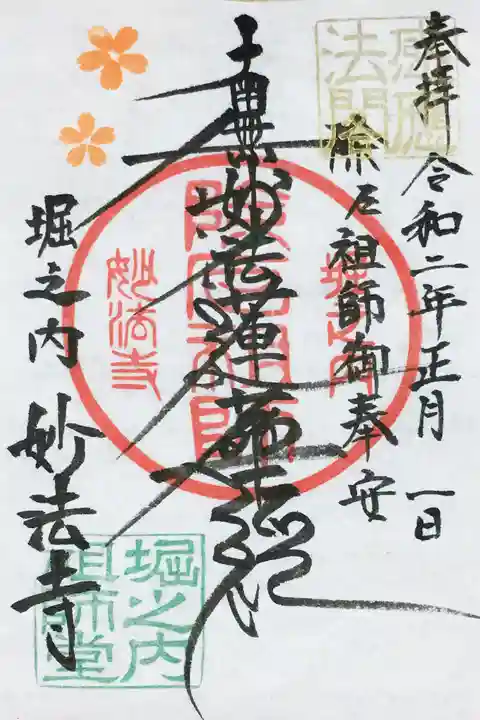 奉拝 令和二年正月一日
除厄祖師御奉安
南無妙法蓮華経
堀之内 妙法寺
除厄祖師
堀之内
妙法寺
法門
堀之内
祖師堂